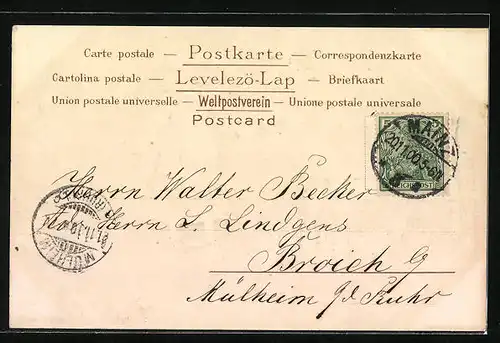 Carte postale — Postkarte — Correspondenzkarte
Cartolina postale — Levelező-Lap — Briefkaart
Union postale universelle — Weltpostverein — Unione postale universale
Postcard
MAINZ
20.11.00.5-6N.
REICHSPOST
Herrn Walter Becker
Herrn L. Lindgens
Broich
Mülheim a/d Ruhr
MÜLHEIM
21.11.